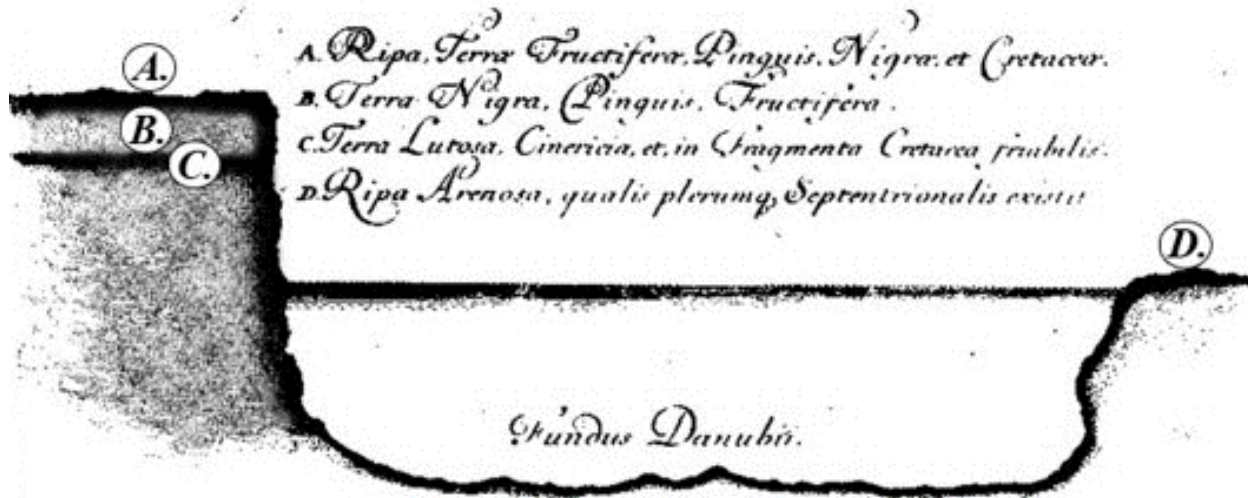 A.
B.
C.
D.
A. Ripa, Terræ Fructiferæ, Pinguis, Nigræ, et Cretaceæ.
B. Terra Nigra, Pinguis, Fructifera.
C. Terra Lutosa, Cinericia, et, in Fragmenta Cretacea friabilis.
D. Ripa Arenosa, qualis plerumq, Septentrionalis existit
Fundus Danubii.